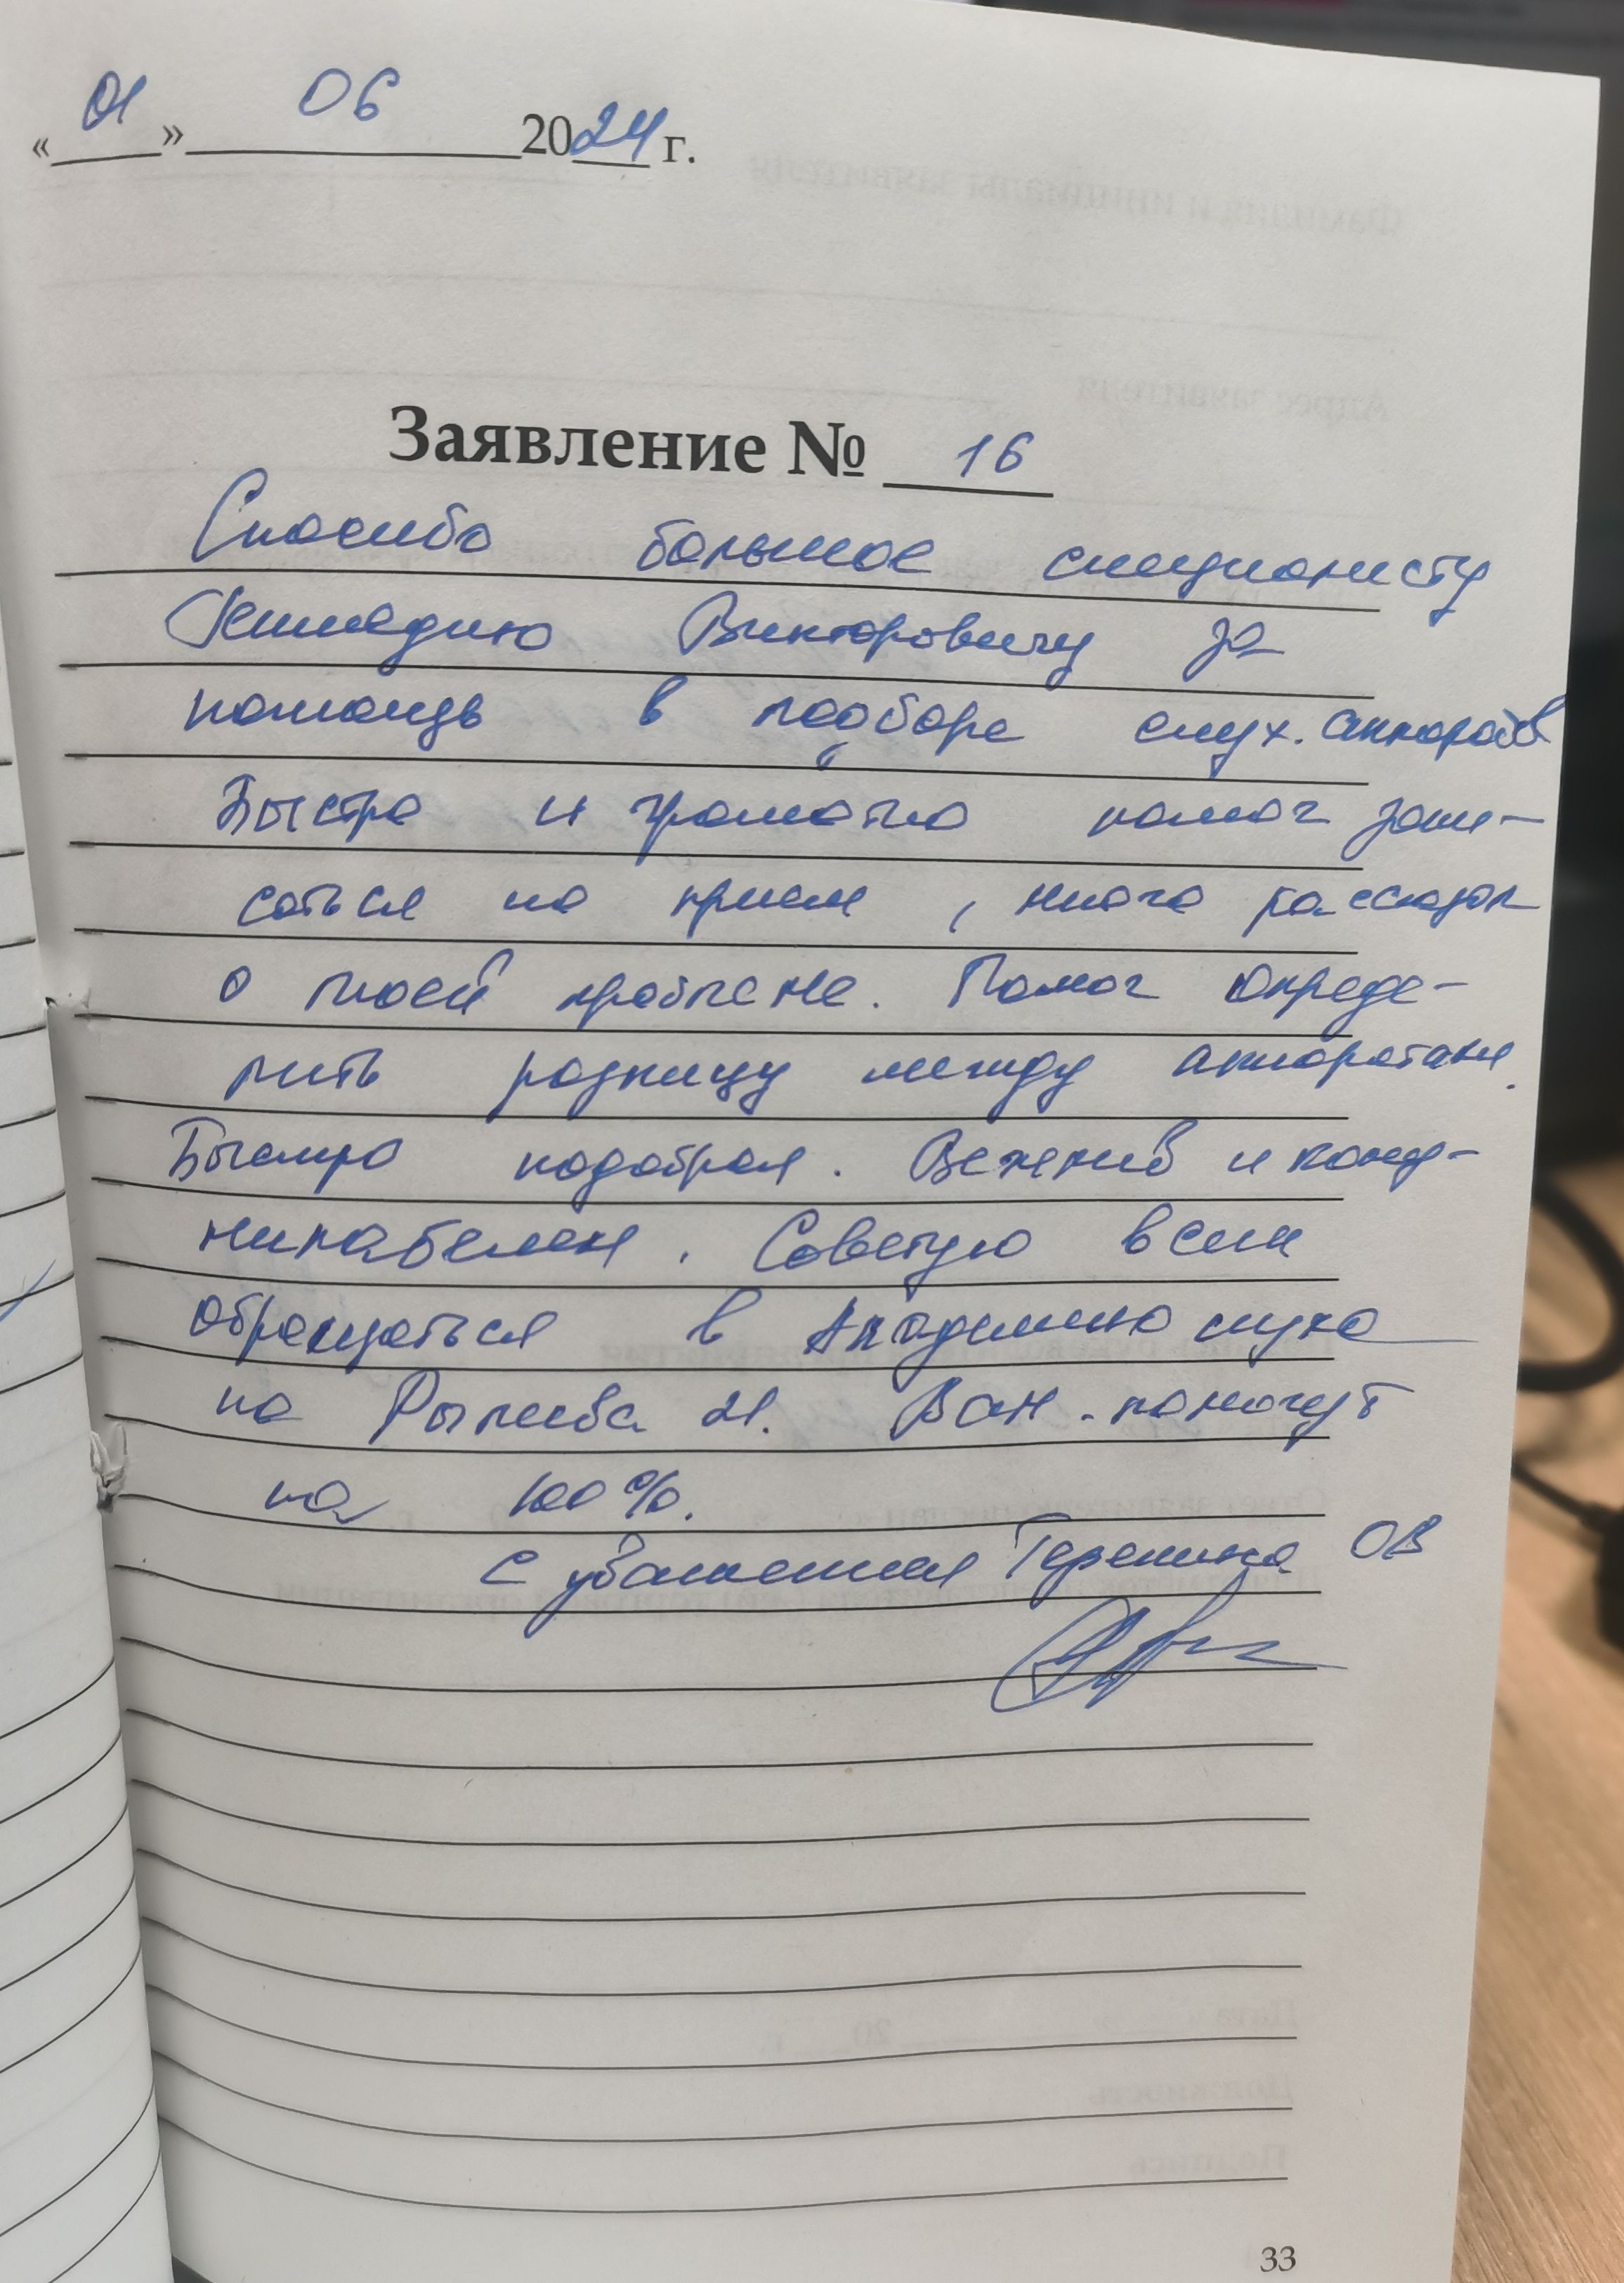 «01» 06 2024 г.
Заявление № 16
Спасибо большое специалисту
Геннадию Викторовичу за
помощь в подборе слух. аппаратов
Быстро и грамотно помог запи-
саться на прием, много рассказал
о моей проблеме. Помог опреде-
лить разницу между аппаратами.
Быстро подобрал. Вежлив и
. Советую всем
обращаться в Академию слуха
на Рылеева 21. Вам помогут
на 100%.
С уважением Терехина ОВ
33